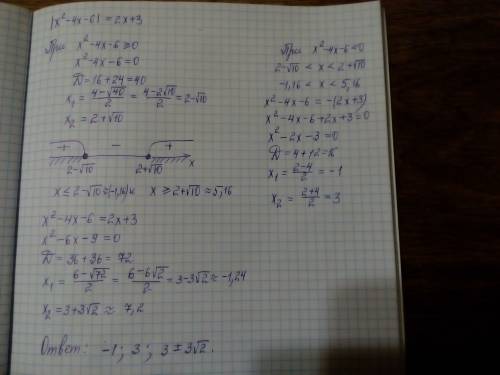 |x²-4x-6| = 2x+3
При x²-4x-6≥0
x²-4x-6=0
D=16+24=40
x₁ = (4-√40)/2 = (4-2√10)/2 = 2-√10
x₂ = 2+√10
+ - +
2-√10 2+√10 x
x ≤ 2-√10 ≈(-1,16) и x ≥ 2+√10 ≈ 5,16
x²-4x-6 = 2x+3
x²-6x-9=0
D = 36+36 = 72
x₁ = (6-√72)/2 = (6-6√2)/2 = 3-3√2 ≈ -1,24
x₂ = 3+3√2 ≈ 7,2
Ответ: -1; 3; 3±3√2.
При x²-4x-6<0
2-√10 < x < 2+√10
-1,16 < x < 5,16
x²-4x-6 = -(2x+3)
x²-4x-6+2x+3=0
x²-2x-3=0
D=4+12=16
x₁ = (2-4)/2 = -1
x₂ = (2+4)/2 = 3